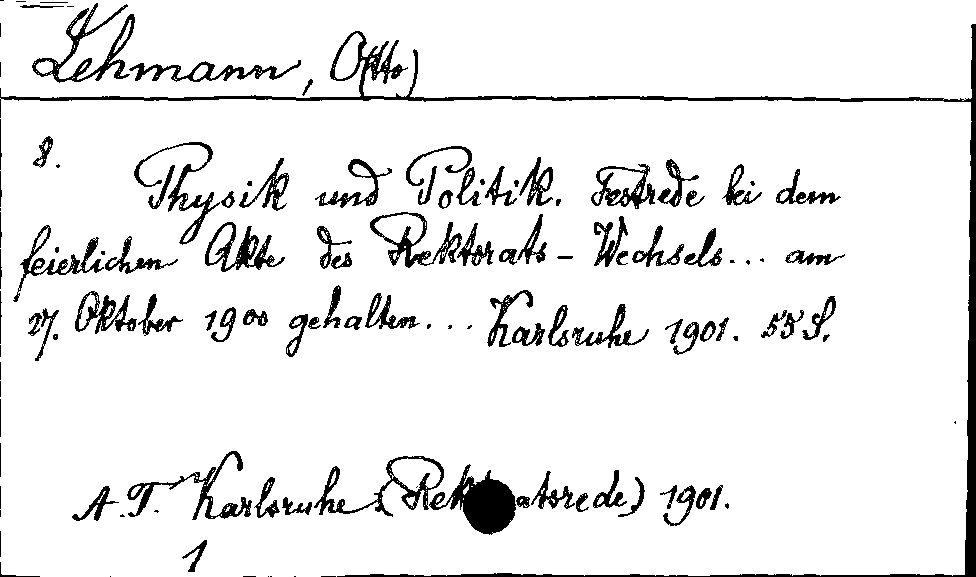 Lehmann, O(tto)
8.
Physik und Politik. Festrede bei dem
feierlichen Akte des Rektorats-Wechsels... am
27. Oktober 1900 gehalten... Karlsruhe 1901. 55 S.
A.T. Karlsruhe (Rektoratsrede) 1901.
1